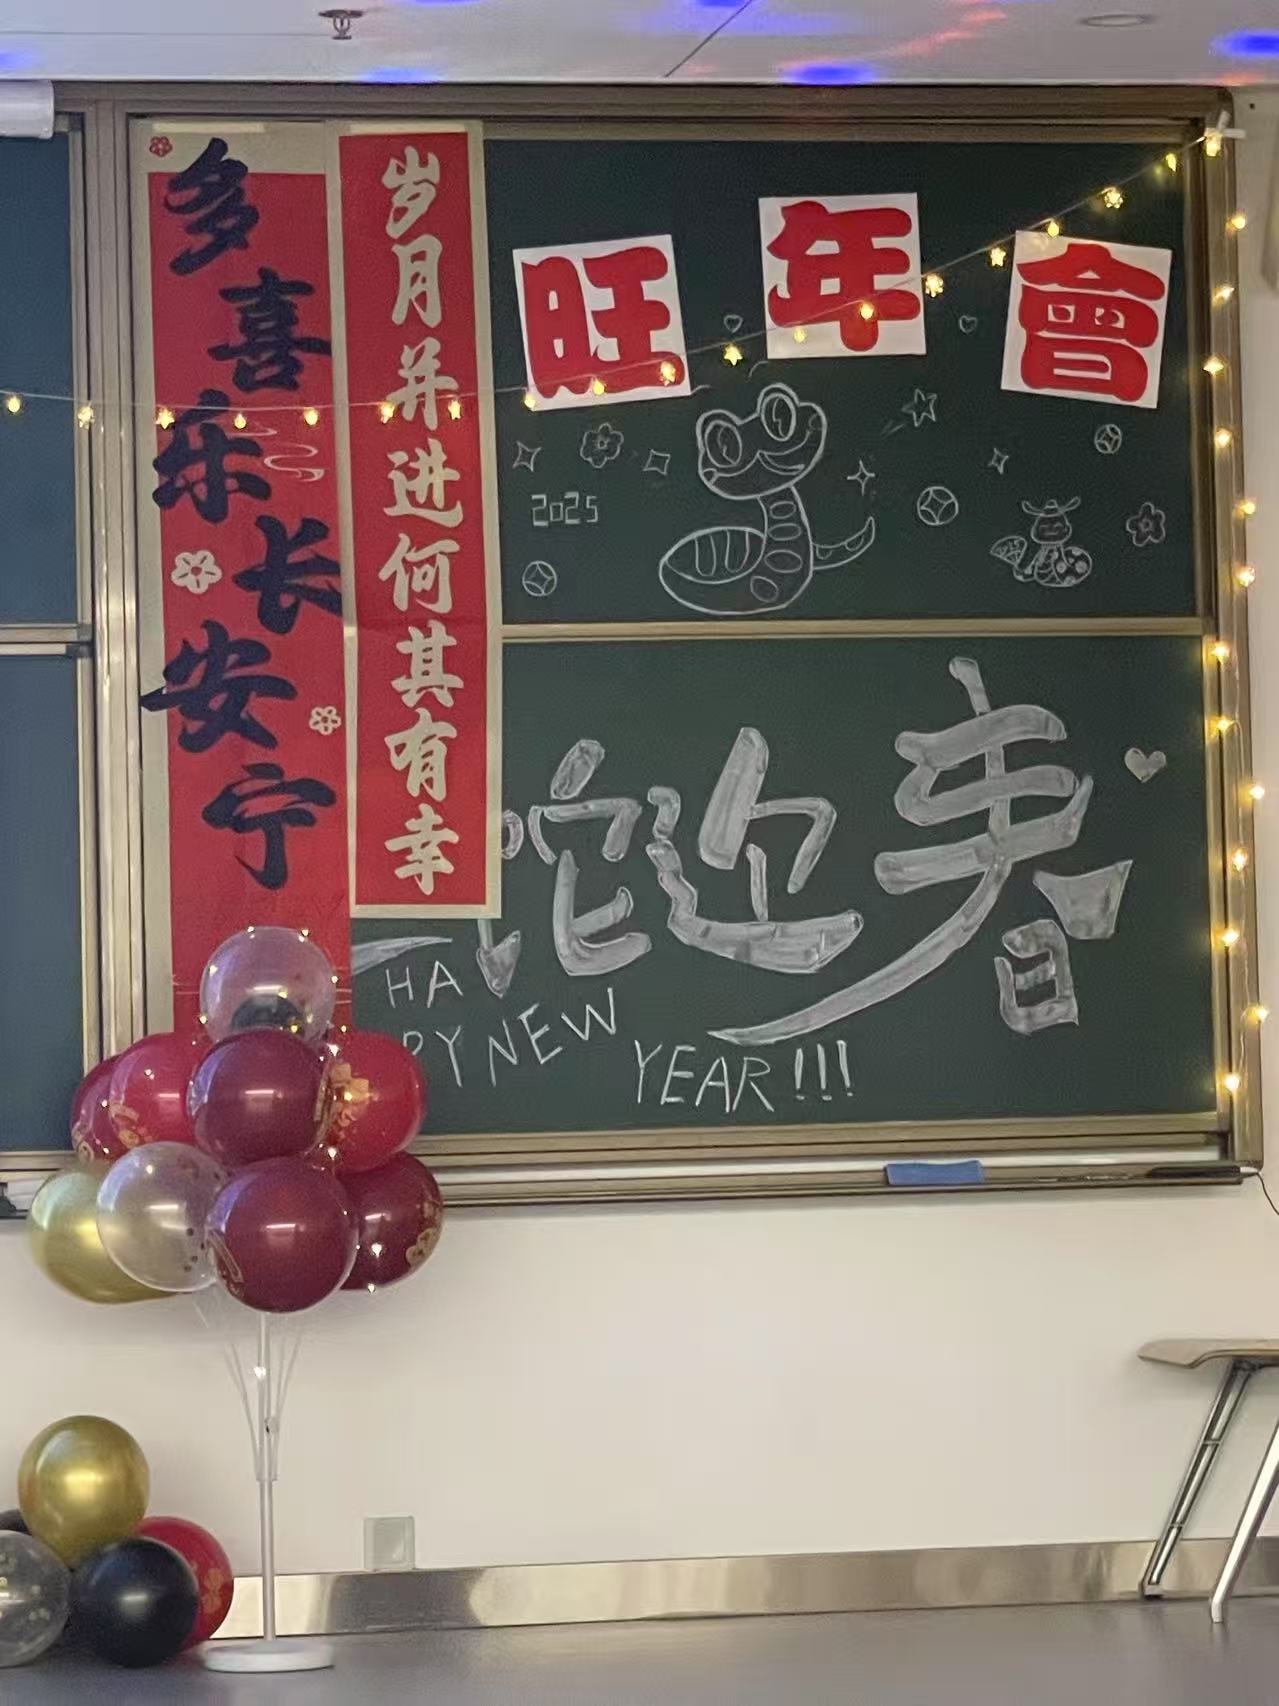 多喜乐长安宁
岁月并进何其有幸
旺年會
2025
蛇迎春
HA
PY NEW
YEAR!!!